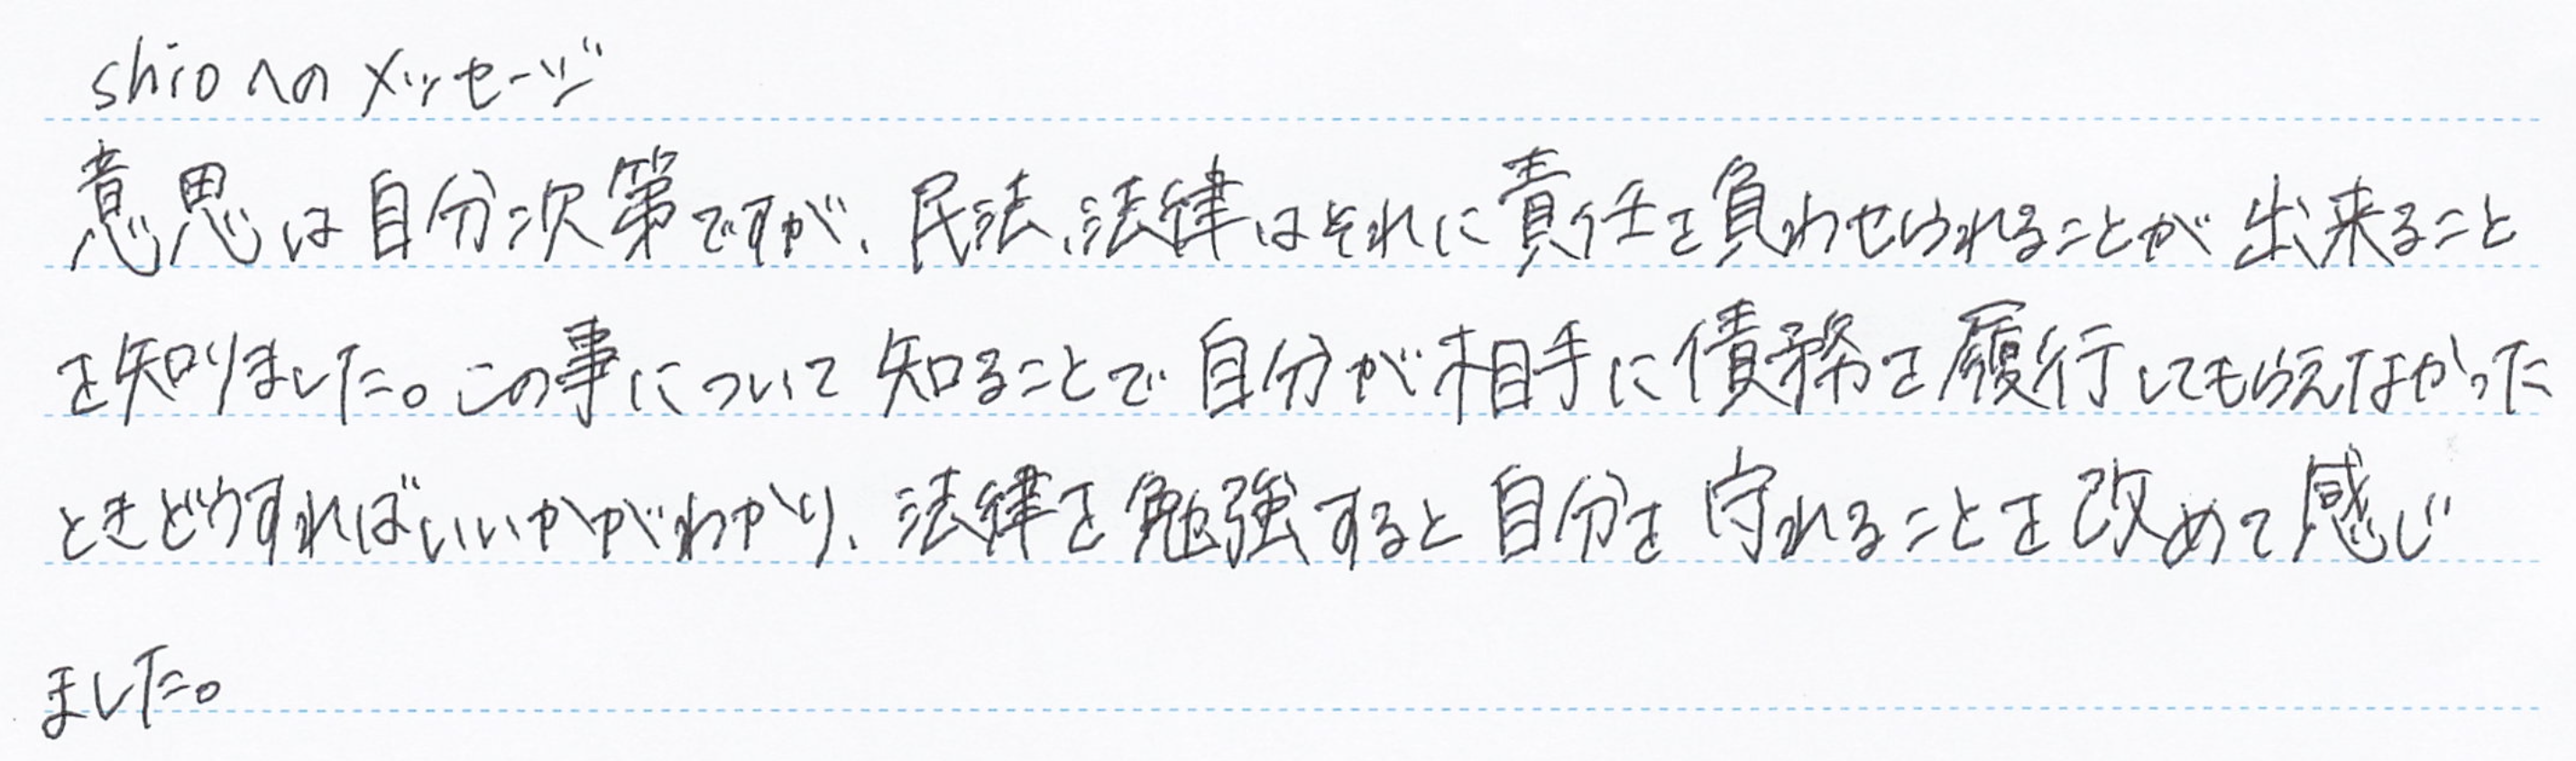 shioへのメッセージ
意思は自分次第ですが、民法、法律はそれに責任を負わせられることが出来ること
を知りました。この事について知ることで自分が相手に債務を履行してもらえなかった
ときどうすればいいかがわかり、法律を勉強すると自分を守れることを改めて感じ
ました。